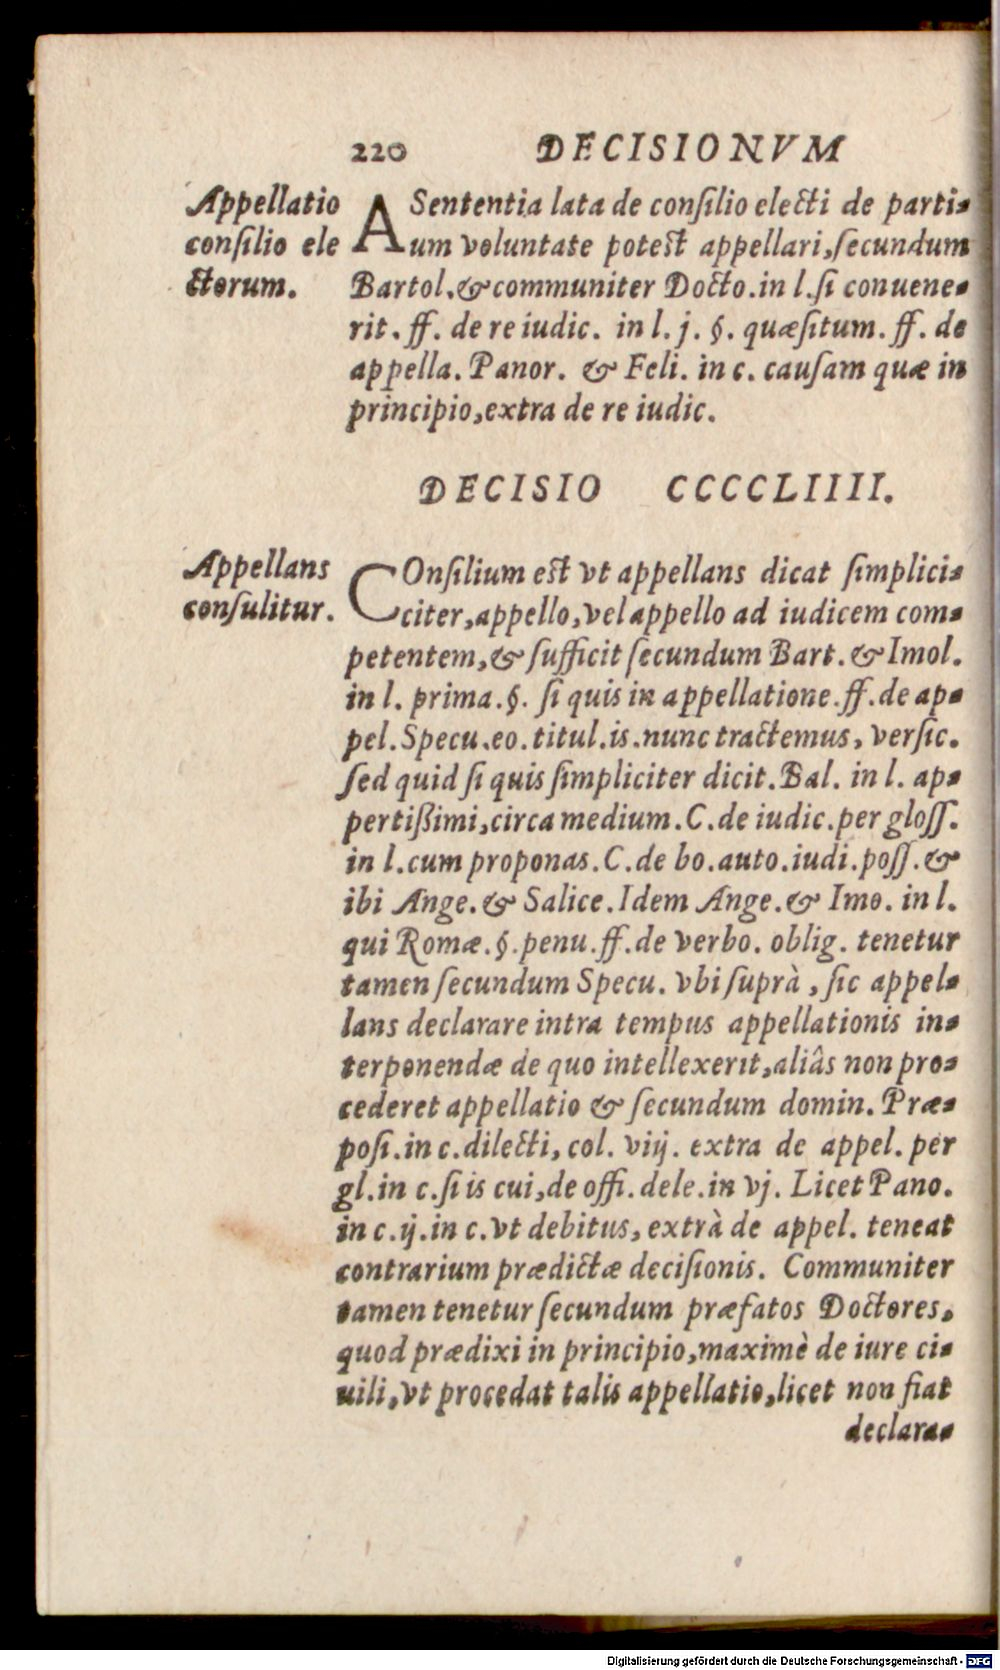 220 DECISIONVM
Appellatio
consilio ele
ctorum.
A Sententia lata de consilio electi de parti-
um voluntate potest appellari, secundum
Bartol. & communiter Docto. in l. si conuene-
rit. ff. de re iudic. in l. j. §. quæsitum. ff. de
appella. Panor. & Feli. in c. causam quæ in
principio, extra de re iudic.
DECISIO CCCCLIIII.
Appellans
consulitur.
COnsilium est vt appellans dicat simplici-
citer, appello, vel appello ad iudicem com-
petentem, & sufficit secundum Bart. & Imol.
in l. prima. §. si quis in appellatione. ff. de ap-
pel. Specu. eo. titul. is. nunc tractemus, versic.
sed quid si quis simpliciter dicit. Bal. in l. ap-
pertißimi, circa medium. C. de iudic. per gloss.
in l. cum proponas. C. de bo. auto. iudi. poss. &
ibi Ange. & Salice. Idem Ange. & Imo. in l.
qui Romæ. §. penu. ff. de verbo. oblig. tenetur
tamen secundum Specu. vbi suprà, sic appel-
lans declarare intra tempus appellationis in-
terponendæ de quo intellexerit, aliâs non pro-
cederet appellatio & secundum domin. Præ-
posi. in c. dilecti, col. viij. extra de appel. per
gl. in c. si is cui, de offi. dele. in vj. Licet Pano.
in c. ij. in c. vt debitus, extrà de appel. teneat
contrarium prædictæ decisionis. Communiter
tamen tenetur secundum præfatos Doctores,
quod prædixi in principio, maximè de iure ci-
uili, vt procedat talis appellatio, licet non fiat
declara-
Digitalisierung gefördert durch die Deutsche Forschungsgemeinschaft - DFG